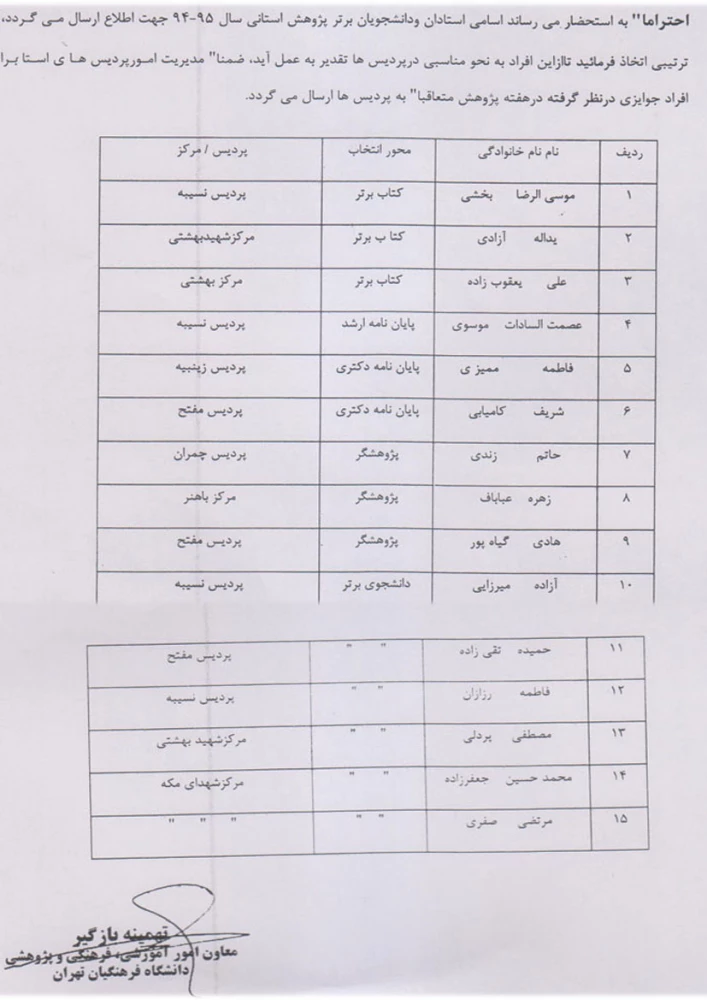 احتراما" به استحضار می رساند اسامی استادان ودانشجویان برتر پژوهش استانی سال ۹۵-۹۴ جهت اطلاع ارسال می گردد،
ترتیبی اتخاذ فرمائید تاازاین افراد به نحو مناسبی درپردیس ها تقدیر به عمل آید، ضمنا" مدیریت امورپردیس ها ی استا برا
افراد جوایزی درنظر گرفته درهفته پژوهش متعاقبا" به پردیس ها ارسال می گردد.
ردیف نام نام خانوادگی محور انتخاب پردیس / مرکز
۱ موسی الرضا بخشی کتاب برتر پردیس نسیبه
۲ یداله آزادی کتا ب برتر مرکزشهیدبهشتی
۳ علی یعقوب زاده کتاب برتر مرکز بهشتی
۴ عصمت السادات موسوی پایان نامه ارشد پردیس نسیبه
۵ فاطمه ممیز ی پایان نامه دکتری پردیس زینبیه
۶ شریف کامیابی پایان نامه دکتری پردیس مفتح
۷ حاتم زندی پژوهشگر پردیس چمران
۸ زهره عباباف پژوهشگر مرکز باهنر
۹ هادی گیاه پور پژوهشگر پردیس مفتح
۱۰ آزاده میرزایی دانشجوی برتر پردیس نسیبه
۱۱ حمیده تقی زاده " " پردیس مفتح
۱۲ فاطمه رزازان " " پردیس نسیبه
۱۳ مصطفی پردلی " " مرکزشهید بهشتی
۱۴ محمد حسین جعفرزاده " " مرکزشهدای مکه
۱۵ مرتضی صفری " " " " "
تهمینه بازگیر
معاون امور آموزشی، فرهنگی و پژوهشی
دانشگاه فرهنگیان تهران